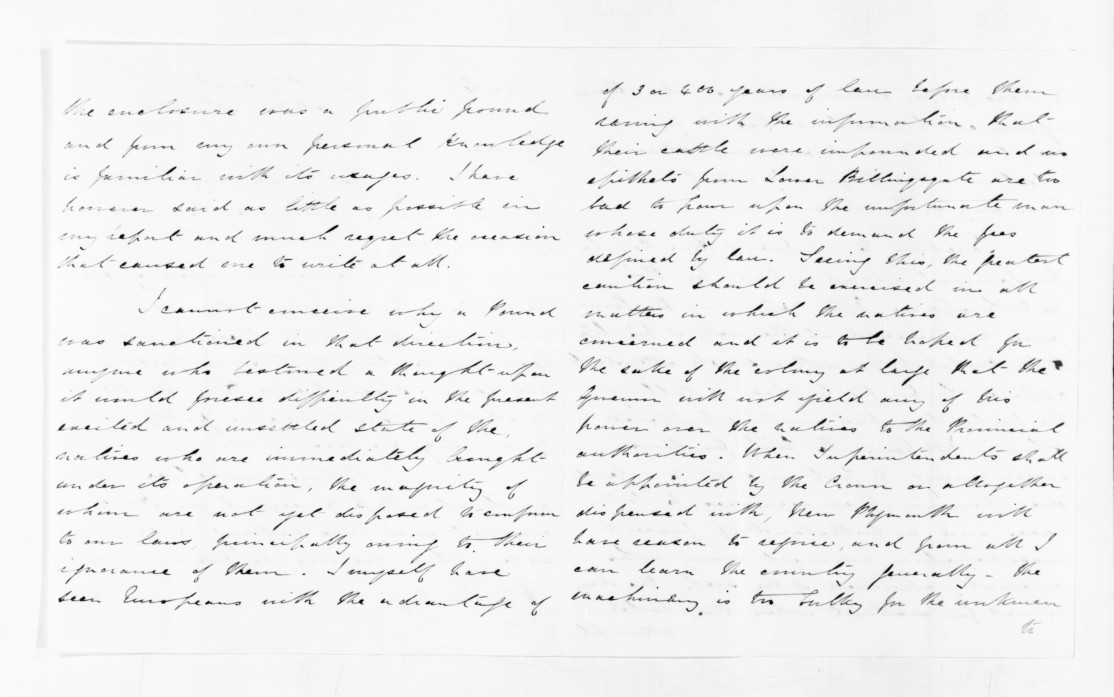 the enclosure was a public pound
and from my own personal knowledge
is familiar with its usages. I have
however said as little as possible in
my report and much regret the occasion
that caused me to write at all.
I cannot conceive why a Pound
was sanctioned in that direction,
anyone who bestowed a thought upon
it would foresee difficulty in the present
excited and unsettled state of the
natives who are immediately brought
under its operation, the majority of
whom are not yet disposed to conform
to our laws, principally owing to their
ignorance of them. I myself have
seen Europeans with the advantage of
of 3 or 400 years of law before them
raving with the information that
their cattle were impounded and no
epithets from Lower Billingsgate are too
bad to pour upon the unfortunate man
whose duty it is to demand the fees
defined by law. Seeing this, the greatest
caution should be exercised in all
matters in which the natives are
concerned and it is to be hoped for
the sake of the colony at large that the
Governor will not yield any of his
power over the natives to the Provincial
authorities. When Superintendents shall
be appointed by the Crown or altogether
dispensed with, New Plymouth will
have reason to rejoice, and from all I
can learn the country generally - the
machinery is too bulky for the workmen
to